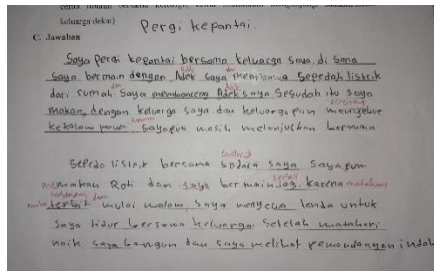 keluarga dekat)
Pergi kepantai.
C. Jawaban
Saya pergi kepantai bersama keluarga saya, di sana
saya bermain dengan Adek saya membawa sepedah listrik
dari rumah saya membonceng Adek saya sesudah itu saya
makan dengan keluarga saya dan keluarga pun
kekolam saya pun masih melanjutkan bermain
sepeda listrik bersama saya saya pun
memakan Roti dan saya bermain karena matahari
mulai malam, saya menyewa tenda untuk
saya tidur bersama keluarga setelah matahari
naik saya bangun dan saya melihat pemandangan indah